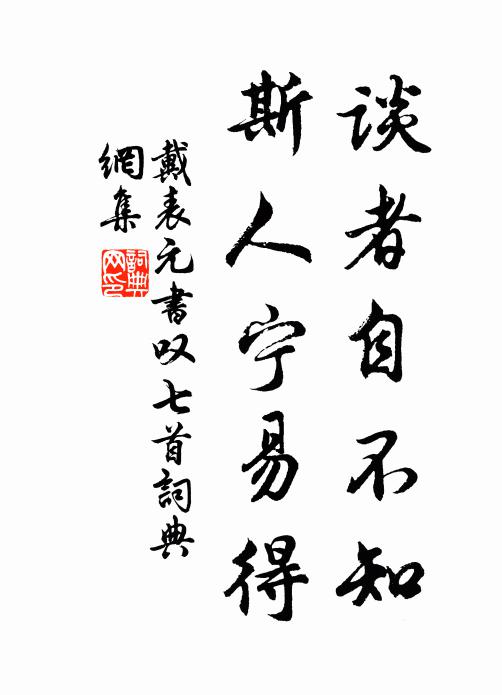 谈者自不知
斯人宁易得
戴表元書叹七首詞典
網集
詞典
网印